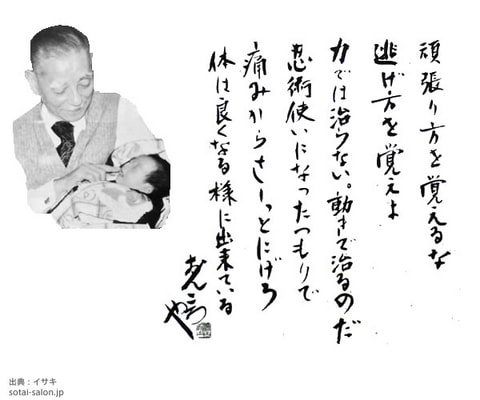 頑張り方を覚えるな
逃げ方を覚えよ
力では治らない。動きで治るのだ
忍術使いになったつもりで
痛みからさーっとにげろ
体は良くなる様に出来ている
出典：イサキ
sotai-salon.jp